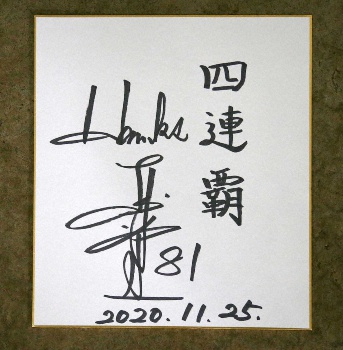 四連覇
Hawks
81
2020.11.25.